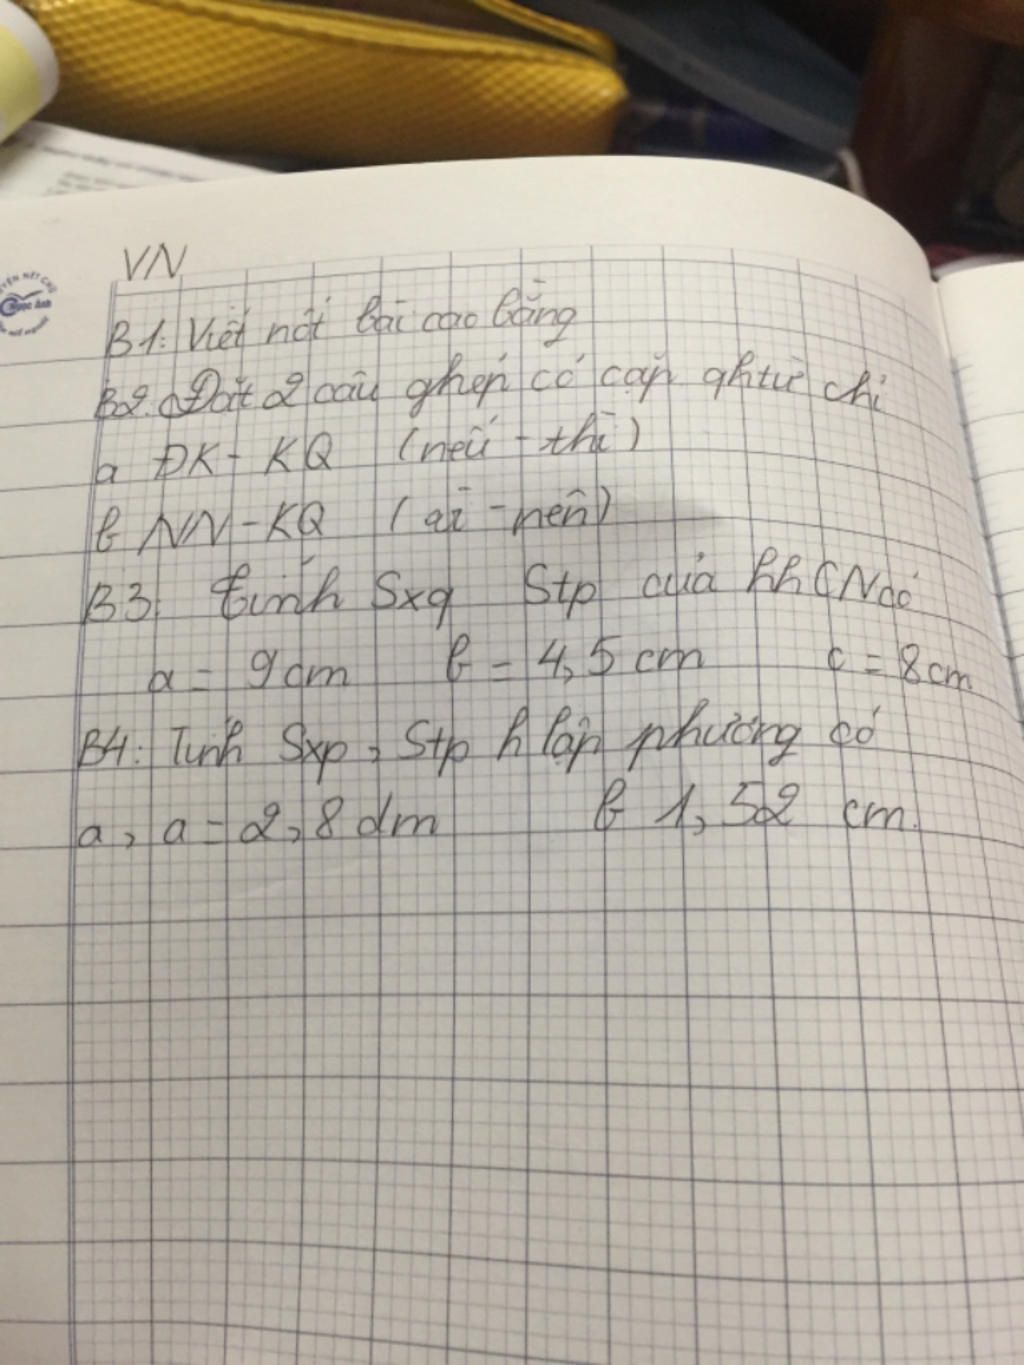 VN
B1: Viết nối bài cao bằng
B2. Đặt 2 câu ghép có cặp qh từ chỉ
a ĐK - KQ (nếu - thì)
b NN - KQ ( - nên)
B3: tính Sxq Stp của hhCN có
a = 9cm b = 4,5 cm c = 8cm
B4: Tính Sxp, Stp h lập phương có
a, a = 2,8 dm b 1,52 cm.